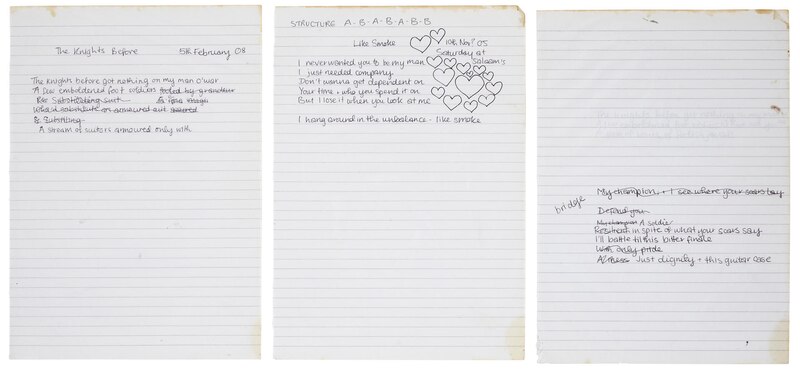 The Knights Before 5th February 08
The Knights before got nothing on my man o'war
A few emboldened foot soldiers fooled by grandeur
Substituting suit
Who'd substitute an armoured suit
& Substitute
A stream of suitors armoured only with
STRUCTURE A-B-A-B-A-B-B
Like Smoke 10th Nov? 05
Saturday at
Salaam's
I never wanted you to be my man
I just needed company
Don't wanna get dependent on
Your time + who you spend it on
But I lose it when you look at me
I hang around in the unbalance - like smoke
My champion + I see where your scars lay
bridge
Defend you
My champion A soldier
in spite of what your scars say
I'll battle til this bitter finale
With only pride
Just dignity + this guitar case